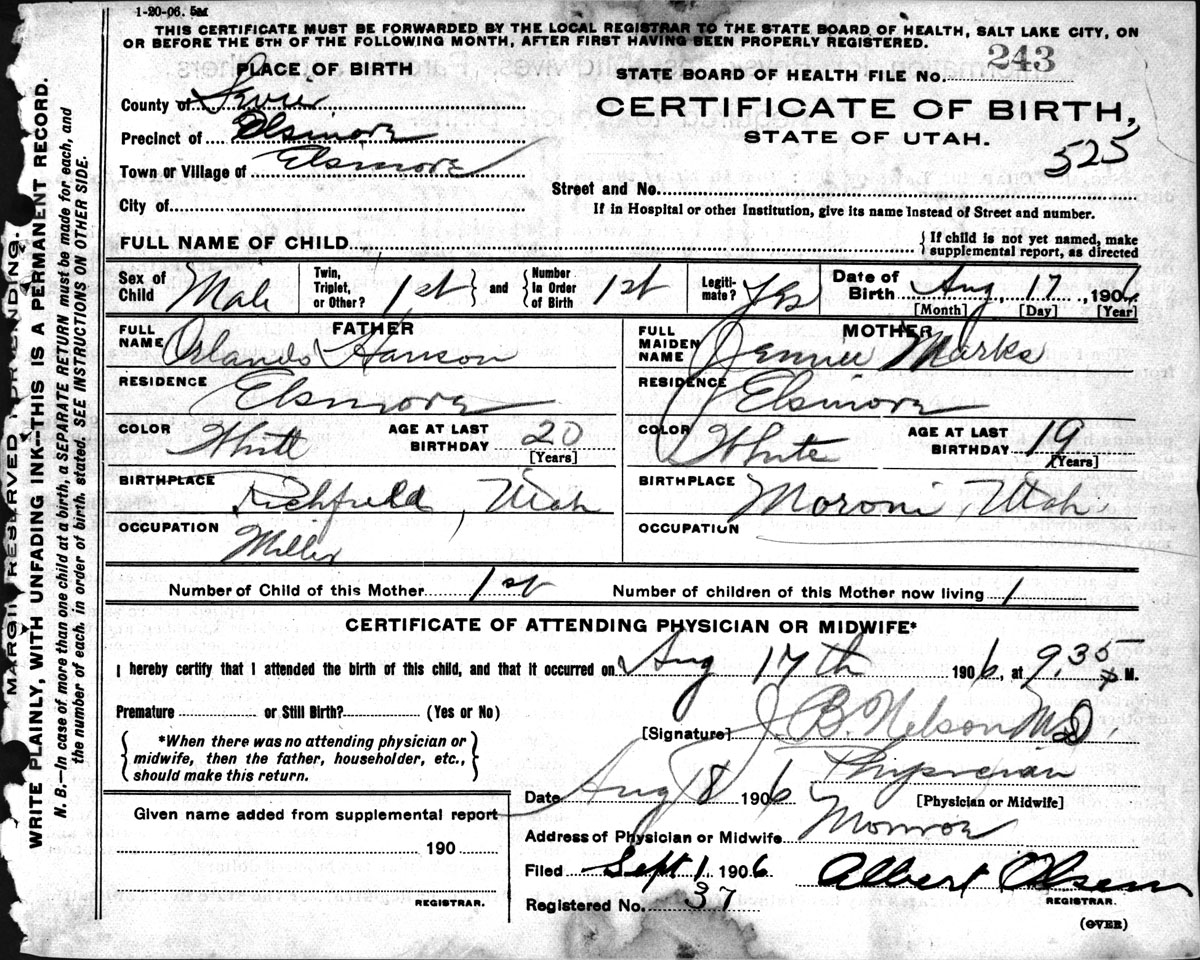 1-20-06. 5M
THIS CERTIFICATE MUST BE FORWARDED BY THE LOCAL REGISTRAR TO THE STATE BOARD OF HEALTH, SALT LAKE CITY, ON
OR BEFORE THE 5TH OF THE FOLLOWING MONTH, AFTER FIRST HAVING BEEN PROPERLY REGISTERED.
PLACE OF BIRTH
STATE BOARD OF HEALTH FILE No. 243
County of Sevier
CERTIFICATE OF BIRTH,
Precinct of Elsinore
STATE OF UTAH.
525
Town or Village of Elsinore
Street and No.
City of
If in Hospital or other Institution, give its name instead of Street and number.
FULL NAME OF CHILD
{ If child is not yet named, make
supplemental report, as directed
Sex of Child Male
Twin, Triplet, or Other? 1st } and { Number In Order of Birth 1st
Legiti- mate? Yes
Date of Birth Aug. 17, 1906
[Month] [Day] [Year]
FATHER
FULL NAME Orlando Hanson
MOTHER
FULL MAIDEN NAME Jennie Marks
RESIDENCE Elsinore
RESIDENCE Elsinore
COLOR White AGE AT LAST BIRTHDAY 20
[Years]
COLOR White AGE AT LAST BIRTHDAY 19
[Years]
BIRTHPLACE Richfield, Utah
BIRTHPLACE Moroni, Utah
OCCUPATION Miller
OCCUPATION
Number of Child of this Mother 1st Number of children of this Mother now living 1
CERTIFICATE OF ATTENDING PHYSICIAN OR MIDWIFE*
I hereby certify that I attended the birth of this child, and that it occurred on Aug 17th 1906, at 9.35 M.
Premature or Still Birth? (Yes or No)
[Signature] J. B. Nelson M.D.
{ *When there was no attending physician or
midwife, then the father, householder, etc.,
should make this return. }
Physician
Date Aug 18 1906 [Physician or Midwife]
Given name added from supplemental report
Address of Physician or Midwife Monroe
190
Filed Sept 1. 1906 Albert Olsen
REGISTRAR.
REGISTRAR.
Registered No. 37
(OVER)
MARGIN RESERVED FOR BINDING.
WRITE PLAINLY, WITH UNFADING INK--THIS IS A PERMANENT RECORD.
N. B.--In case of more than one child at a birth, a SEPARATE RETURN must be made for each, and
the number of each, in order of birth, stated. SEE INSTRUCTIONS ON OTHER SIDE.